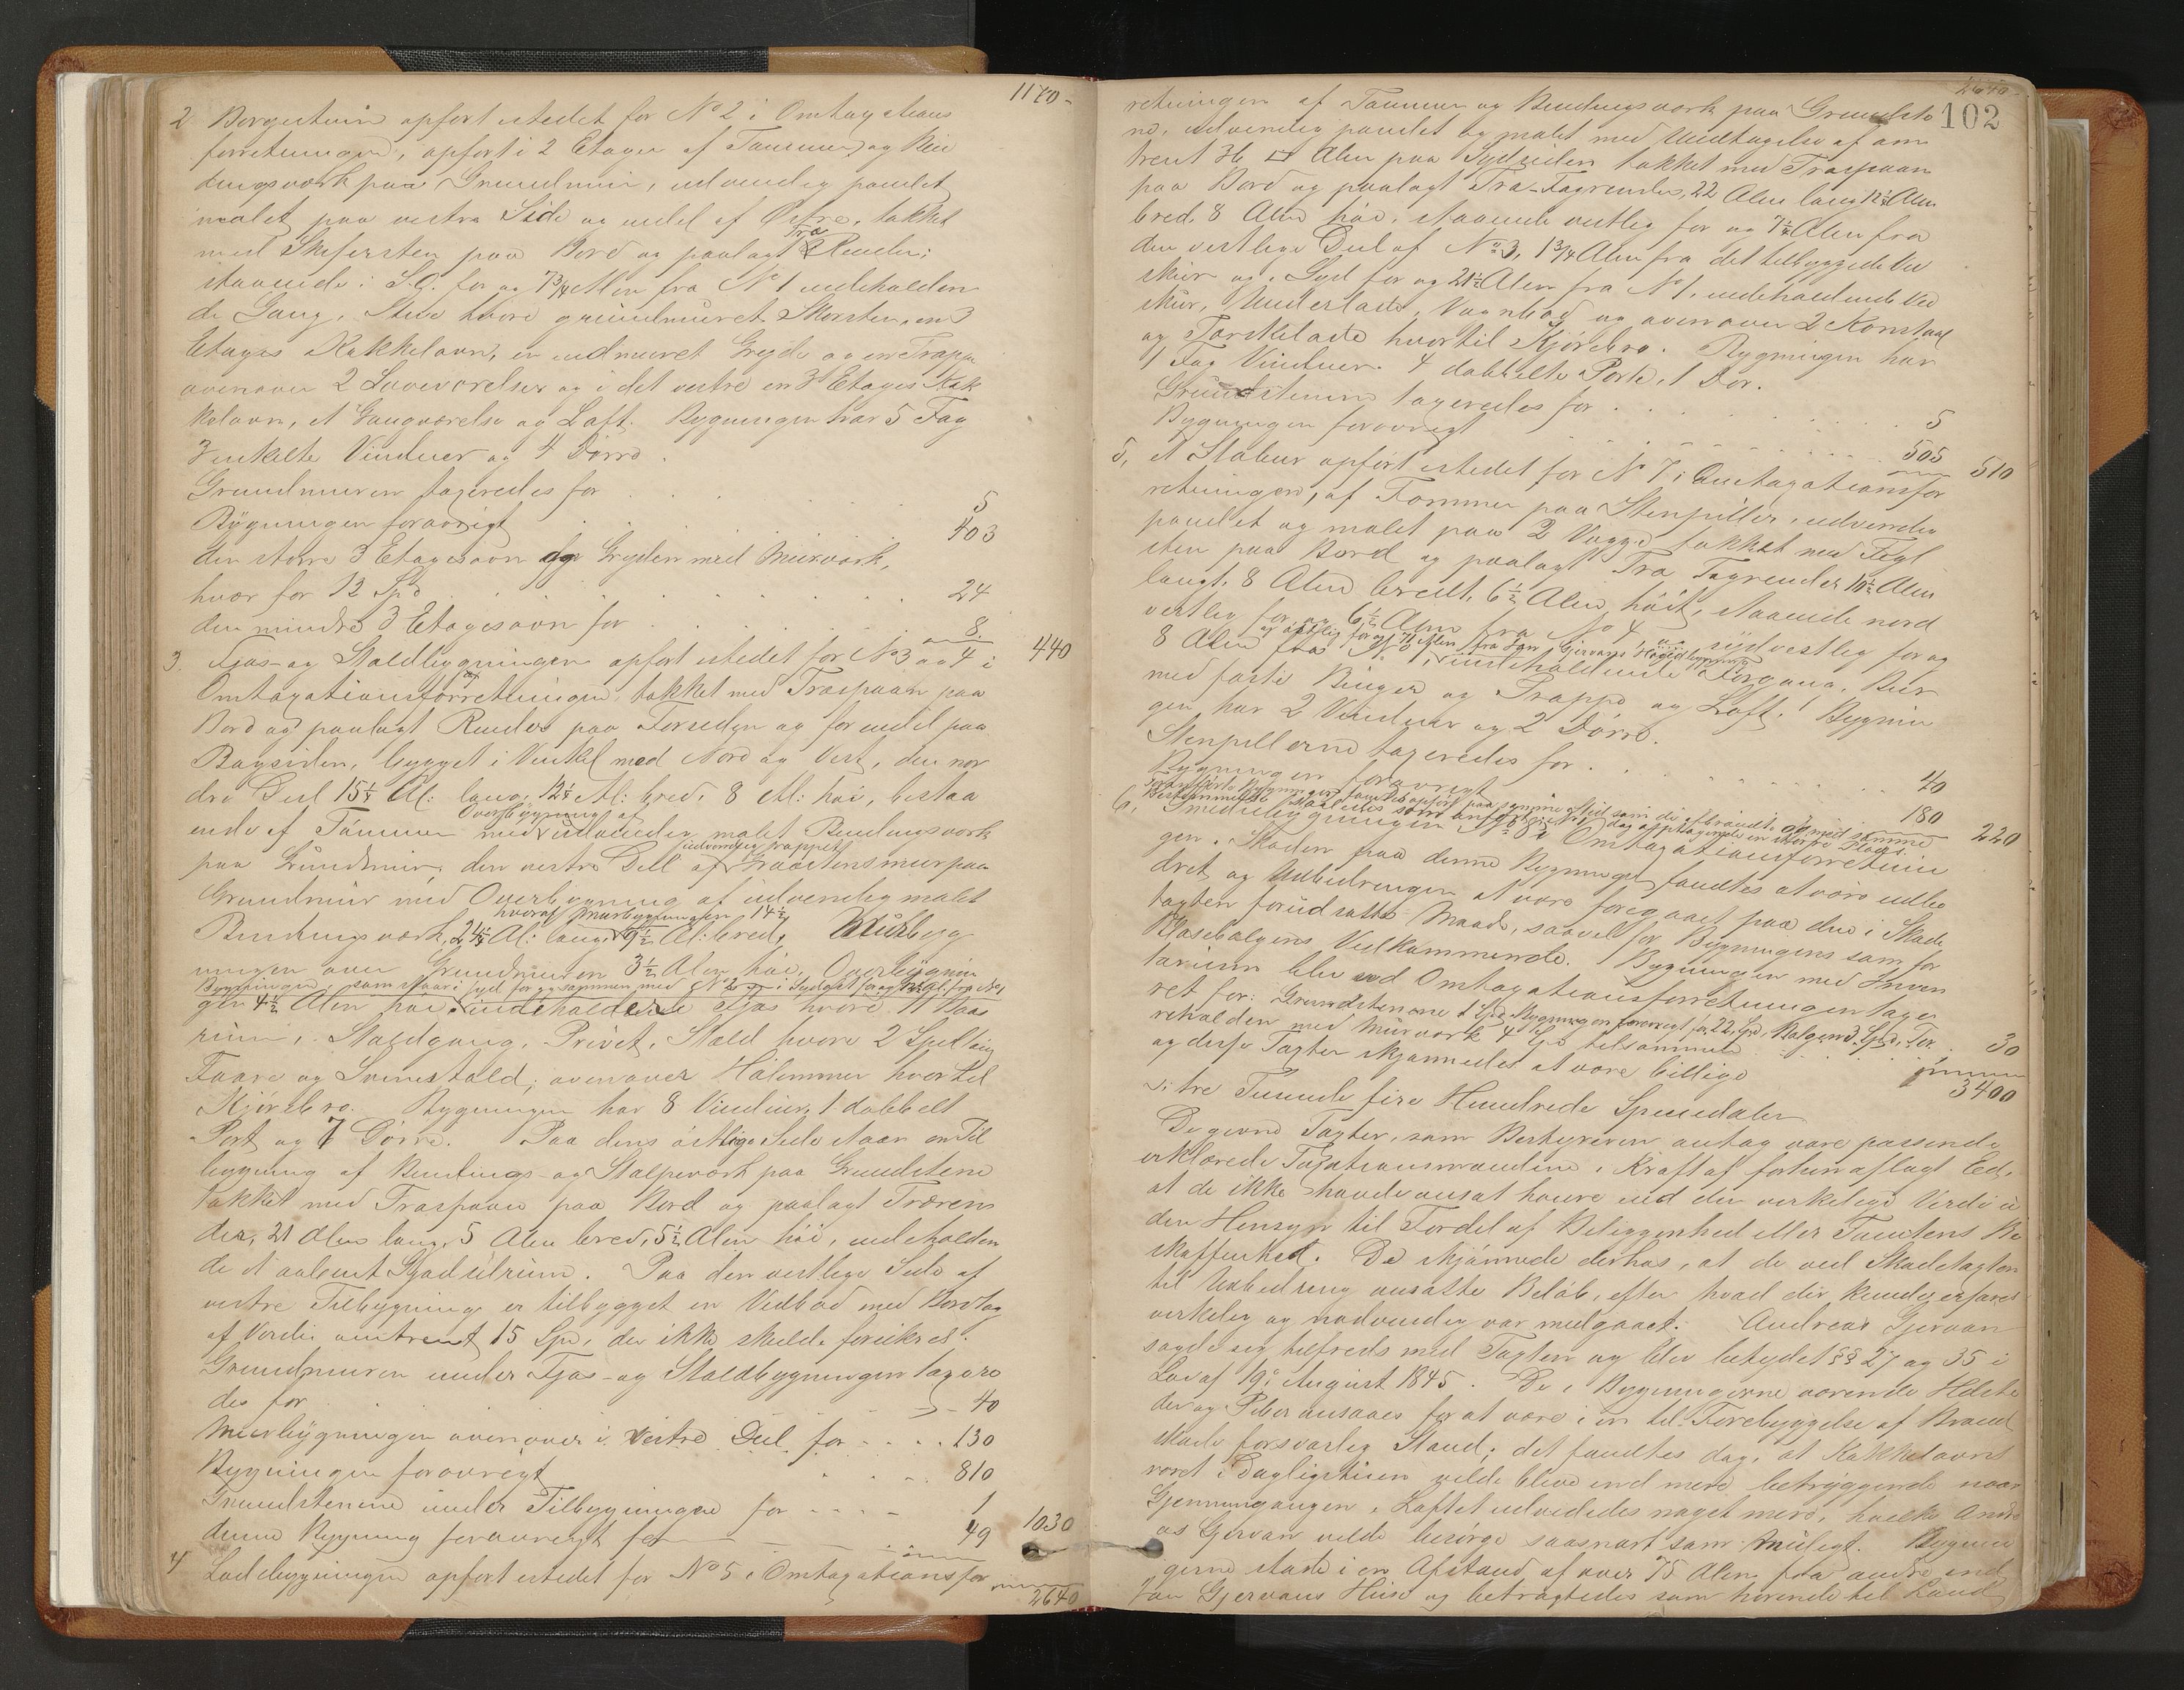 1170-
2 Borgestuen opført istedet for No 2 i Omtaxations
forretningen, opført i 2 Etager af Tømmer og Bin
dingsværk paa Grundmur, udvendig panelet
malet paa vestre Side og endel af Østre, takket
Træ
med Skifersten paa Bord og paalagt Render;
staaende i S.O. for og 7 3/4 Alen fra No 1 indeholden
de Gang, Stue hvori grundmuret Skorsten, en 3
Etages Kakkelovn, en indmuret Gryde og en Trappe
ovenover 2 Soveværelser og i det vestre en 3 Etages Kak
kelovn, et Gangværelse og Loft. Bygningen har 5 Fag
3 enkelte Vinduer og 4 Dørre.
Grundmuren taxeredes for . . . 5
Bygningen forøvrigt . . . 403
den større 3 Etagesovn og Gryden med Murværk,
hver for 12 Spd . . . 24
den mindre 3 Etagesovn for . . . 8
440
3. Fjøs- og Staldbygningen opført istedet for No 3 og 4 i
Omtaxationsforretningen, takket med Træspaan paa
Bord og paalagt Render paa Forsiden og for endel paa
Bagsiden, bygget i Vinkel mod Nord og Vest, den nor
dre Deel 15 1/4 Al: lang, 12 1/4 Al: bred, 8 Al: høi, bestaa
Overbygning af
ende af Tømmer med udvendig malet Bindingsværk
udvendig rappet
paa Grundmur, den vestre Deel af Graastensmur paa
Grundmur med Overbygning af udvendig malet
hvoraf Murbygningen 14 1/2
Bindingsværk, 24 1/4 Al: lang, 9 1/2 Al: bred, Murbyg
ningen over Grundmuren 3 1/2 Alen høi, Overbygnin
Bygningen, som staar i Syd for og sammen med No 2 og i Sydost for og Al. fra No 1
gen 4 1/2 Alen høi, indeholdende Fjøs hvori 11 Baas
rum, Staldgang, Privet, Stald hvori 2 Spiltoug
Faare og Svinestald; ovenover Hølemmer hvortil
Kjørebro. Bygningen har 8 Vinduer, 1 dobbelt
Port og 7 Dørre. Paa dens østlige Side staar en Til
bygning af Bindings- og Stolpeværk paa Grundstene
takket med Træspaan paa Bord og paalagt Træren
der, 21 Alen lang, 5 Alen bred, 5 1/2 Alen høi, indeholden
de et aabent Gjødselrum. Paa den vestlige Side af
vestre Tilbygning er tilbygget en Vedbod med Bordtag
af Værdi omtrent 15 Spd, der ikke skulde forsikres.
Grundmuren under Fjøs- og Staldbygningen taxere
des for . . . 40
Murbygningen ovenover i vestre Deel for . . . 130
Bygningen forøvrigt . . . 810
Grundstenene under Tilbygningen for . . . 1
denne Bygning forøvrigt for . . . 49
1030
4 Ladebygningen opført istedet for No 5 i Omtaxationsfor
2640
2640
102
retningen af Tømmer og Bindingsværk paa Grundste
ne, udvendig panelet og malet med Undtagelse af om
trent 36 □ Alen paa Sydsiden takket med Træspaan
paa Bord og paalagt Træ-Tagrender, 22 Alen lang 12 1/2 Alen
bred, 8 Alen høi, staaende vestlig for og 7 1/2 Alen fra
den vestlige Deel af No 3, 1 3/4 Alen fra det tilbyggede Ved
skur og i Syd for og 21 1/2 Alen fra No 1, indeholdende Ved
skur, Underlade, Vognbod og ovenover 2 Kornstaal
og Tærskelade hvortil Kjørebro. Bygningen har
1 Fag Vinduer. 4 dobbelte Porte, 1 Dør.
Grundstenene taxeredes for . . . 5
Bygningen forøvrigt . . . 505
510
5, et Stabur opført istedet for No 7 i Omtaxationsfor
retningen, af Tømmer paa Stenpiller, udvendig
panelet og malet paa 2 Vægge, takket med Tegl
sten paa Bord og paalagt Træ Tagrender 10 1/2 Alen
langt, 8 Alen bredt, 6 1/2 Alen høit, staaende nord
vestlig for og 6 1/2 Alen fra No 4, og sydvestlig for og
og østlig for og 75 Alen fra Jan Gjervans
8 Alen fra No 1, indeholdende Forgang, Bur
med faste Binger og Trappe og Loft. Bygnin
gen har 2 Vinduer og 2 Dørre.
Stenpillerne taxeredes for . . . 40
Bygningen forøvrigt . . . 180
220
Bygninger fandtes opført paa samme Sted som de afbrændte og med samme
Bestemmelse
6, Smediebygningen No 8 i Omtaxationsforretnin
gen. Skaden paa denne Bygning fandtes at være udbe
dret og Udbedringen at være foregaaet paa den i Skade
taxten forudsatte Maade, saavel for Bygningens som for
Blæsebælgens Vedkommende. Bygningen med Inven
tarium blev ved Omtaxationsforretningen taxe
ret for: Grundstenene 1 Spd, Bygningen forøvrigt for 22 Spd, Bælgen 3 Spd,
med Murværk 4 Spd tilsammen . . . 30
og disse Taxter skjønnedes at være billige
3400
: tre Tusinde fire Hundrede Speciedaler
De givne Taxter, som Bestyreren antog være passende
erklærede Taxationsmændene, i Kraft af forhen aflagt Eed,
at de ikke havde ansat høiere end den virkelige Værdi u
den Hensyn til Fordel af Beliggenhed eller Tomtens Be
skaffenhed. De skjønnede derhos, at de ved Skadetaxten
til Udbedring ansatte Beløb, efter hvad der kunde erfares
virkelig og nødvendig var medgaaet. Andreas Gjervan
sagde sig tilfreds med Taxten og blev betydet §§ 27 og 35 i
Lov af 19de August 1845. De i Bygningerne værende Ildste
der og Piber ansaaes for at være i en til Forebyggelse af Brand
skade forsvarlig Stand; det fandtes dog, at Kakkelovns
røret i Dagligstuen vilde blive end mere betryggende naar
Gjennemgangen i Loftet udvidedes noget mere, hvilke Andre
as Gjervan vilde besørge saasnart som muligt. Bygnin
gerne stode i en Afstand af over 75 Alen fra andre end
Jan Gjervans Huse og betragtedes som hørende til Land